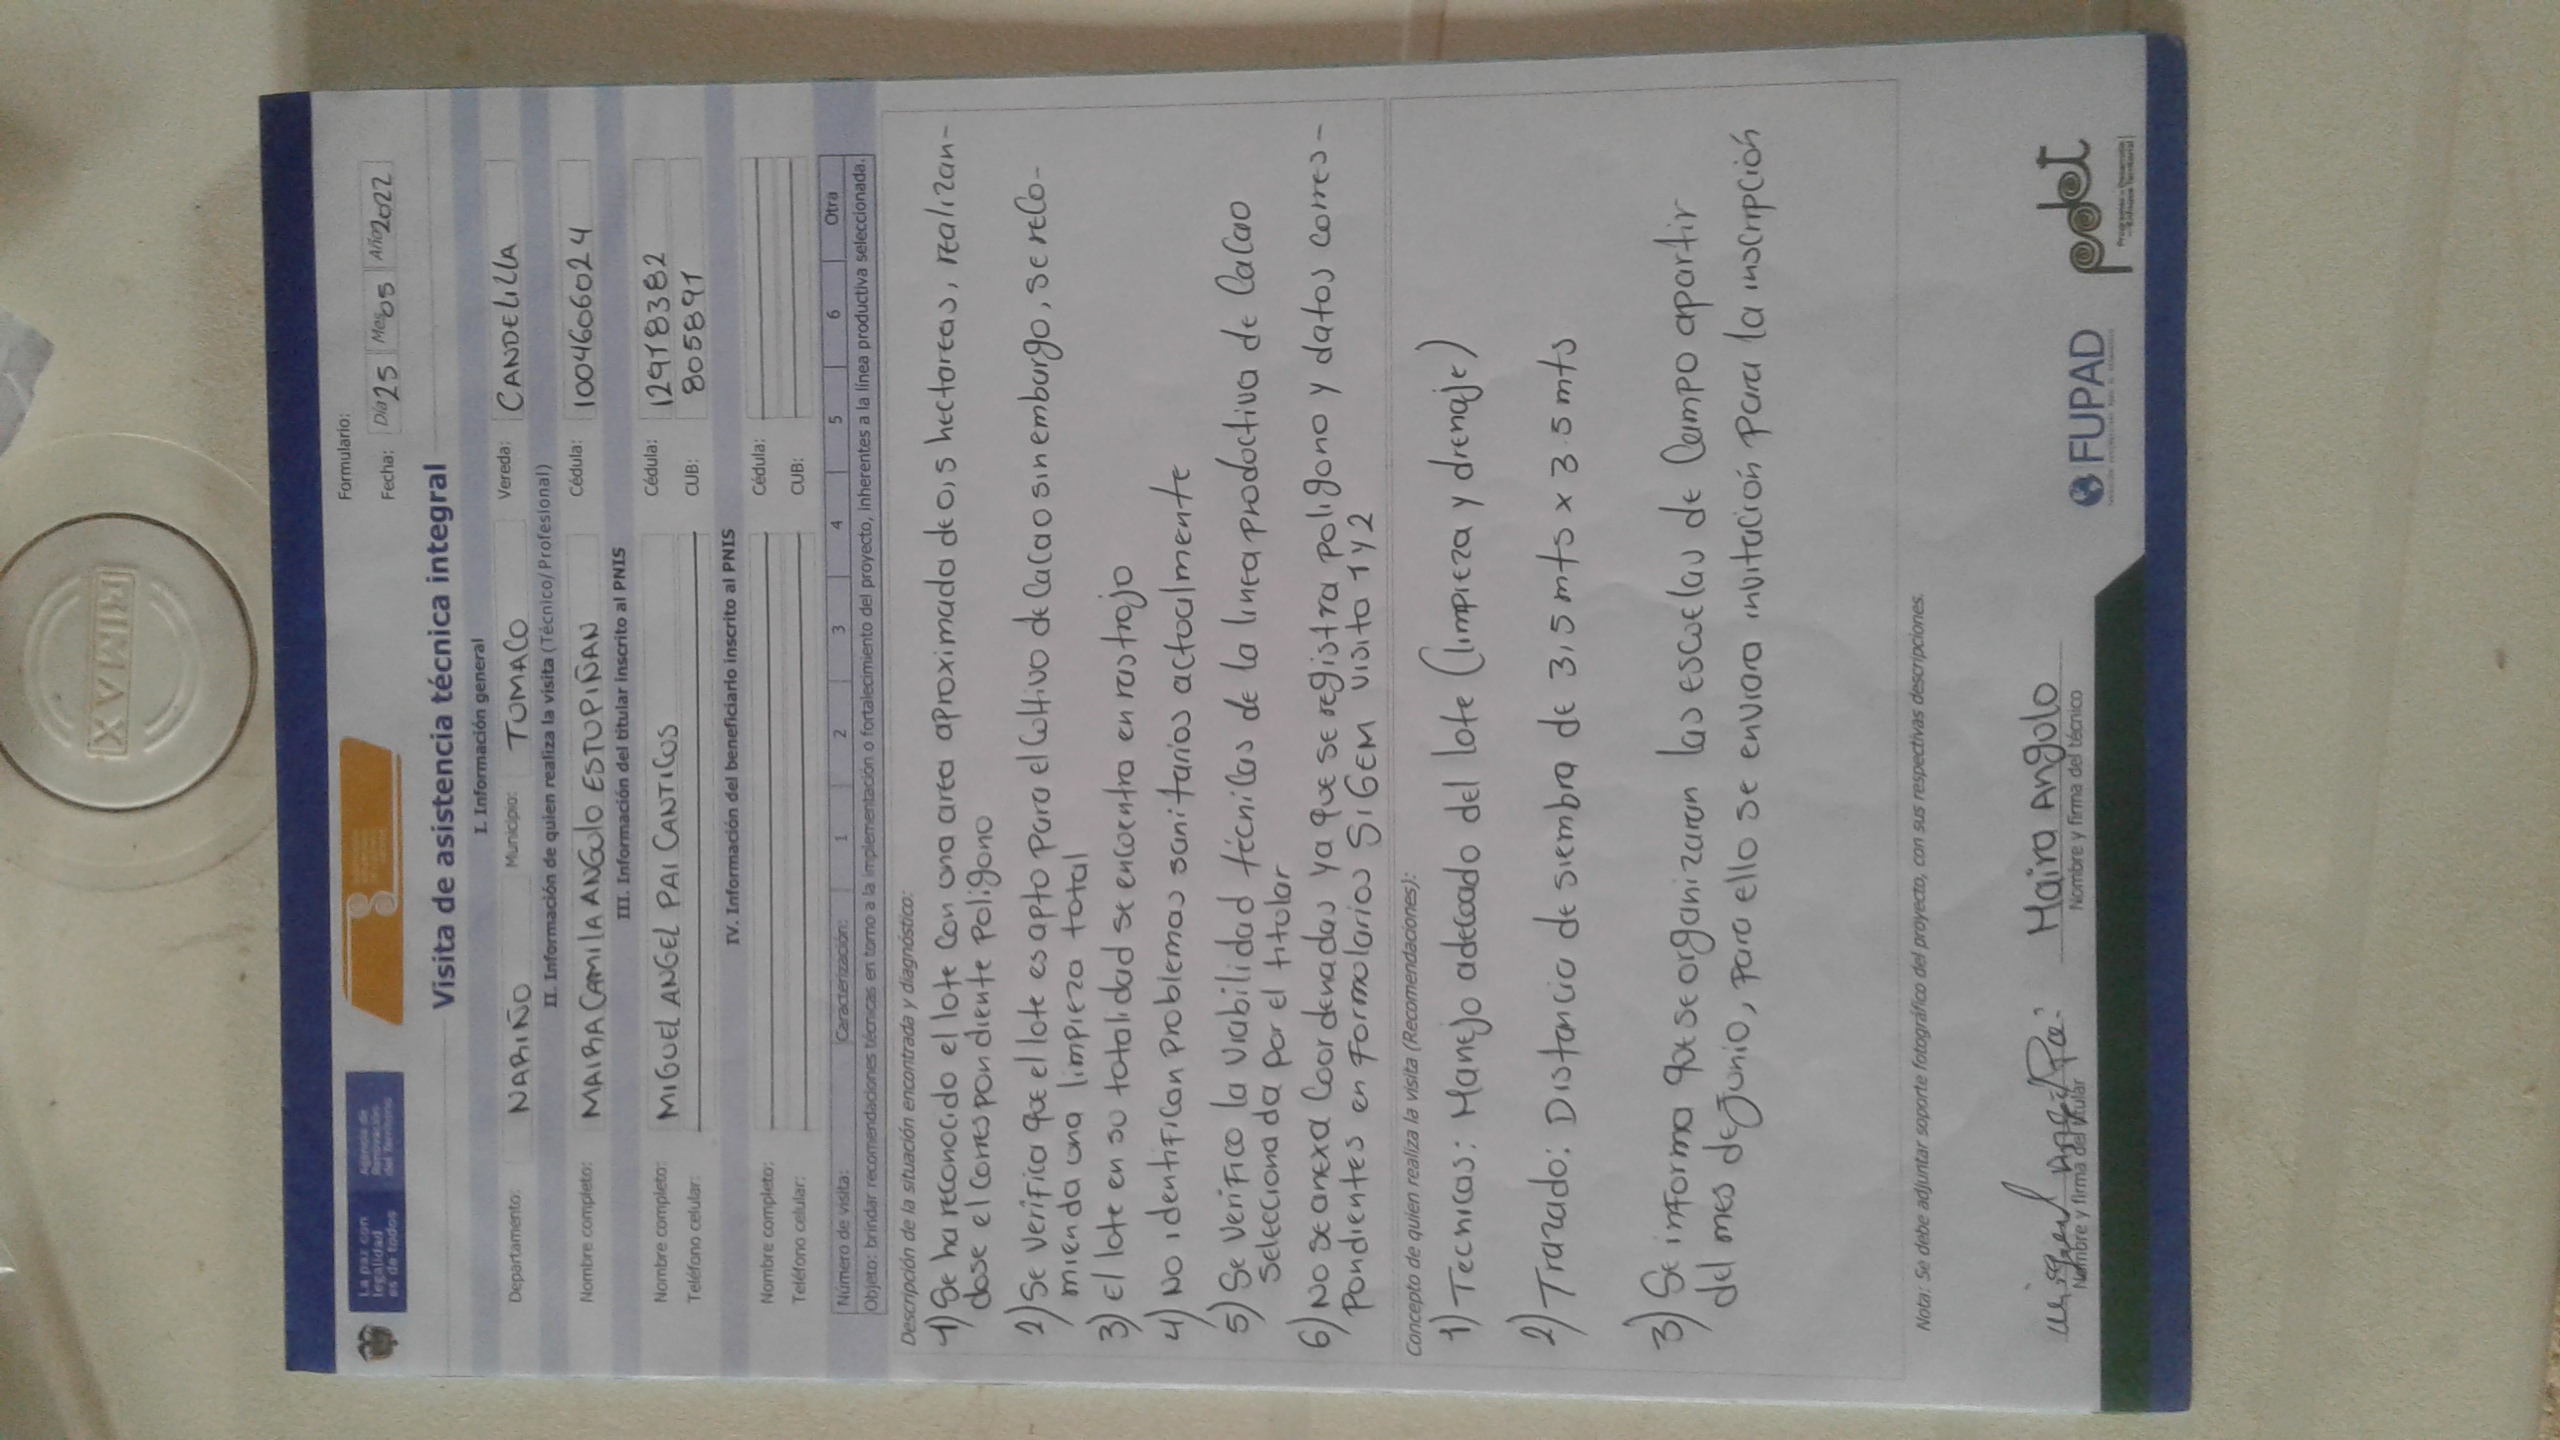 RIMAX
La paz con
legalidad
es de todos
Agencia de
Renovación
del Territorio
Formulario:
Fecha: Día 25 Mes 05 Año 2022
Visita de asistencia técnica integral
I. Información general
Departamento: NARIÑO Municipio: TUMACO Vereda: CANDELILLA
II. Información de quien realiza la visita (Técnico/Profesional)
Nombre completo: MAIRA CAMILA ANGULO ESTUPIÑAN Cédula: 1004606024
III. Información del titular inscrito al PNIS
Nombre completo: MIGUEL ANGEL PAI CANTICUS Cédula: 12918382
Teléfono celular: CUB: 805891
IV. Información del beneficiario inscrito al PNIS
Nombre completo: Cédula:
Teléfono celular: CUB:
Número de visita: Caracterización: 1 2 3 4 5 6 Otra
Objeto: brindar recomendaciones técnicas en torno a la implementación o fortalecimiento del proyecto, inherentes a la línea productiva seleccionada.
Descripción de la situación encontrada y diagnóstico:
1) Se ha reconocido el lote con una area aproximada de 0,5 hectareas, realizan-
dose el correspondiente Poligono
2) Se verifica que el lote es apto para el cultivo de cacao sin embargo, se reco-
mienda una limpieza total
3) El lote en su totalidad se encuentra en rastrojo
4) No identifican problemas sanitarios actualmente
5) Se verifico la viabilidad técnicas de la linea productiva de cacao
seleccionada por el titular
6) No se anexa coordenadas ya que se registra poligono y datos corres-
pondientes en formularios SIGEM visita 1 y 2
Concepto de quien realiza la visita (Recomendaciones):
1) Tecnicas: Manejo adecuado del lote (limpieza y drenaje)
2) Trazado: Distancia de siembra de 3,5 mts x 3.5 mts
3) Se informa que se organizaran las escuelas de campo apartir
del mes de Junio, para ello se enviara invitación para la inscripción
Nota: Se debe adjuntar soporte fotográfico del proyecto, con sus respectivas descripciones.
Miguel Angel Pai Maira Angulo
Nombre y firma del titular Nombre y firma del técnico
FUPAD
pdet